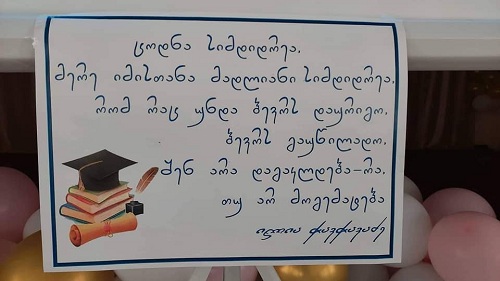 ცოდნა სიმდიდრეა.
მერე იმისთანა მადლიანი სიმდიდრეა.
რომ რაც უნდა ბევრს დაურიგო.
ბევრს გაუნილადო.
შენ არა დაგაკლდება-რა.
თუ არ მოგემატება
ილია ჭავჭავაძე